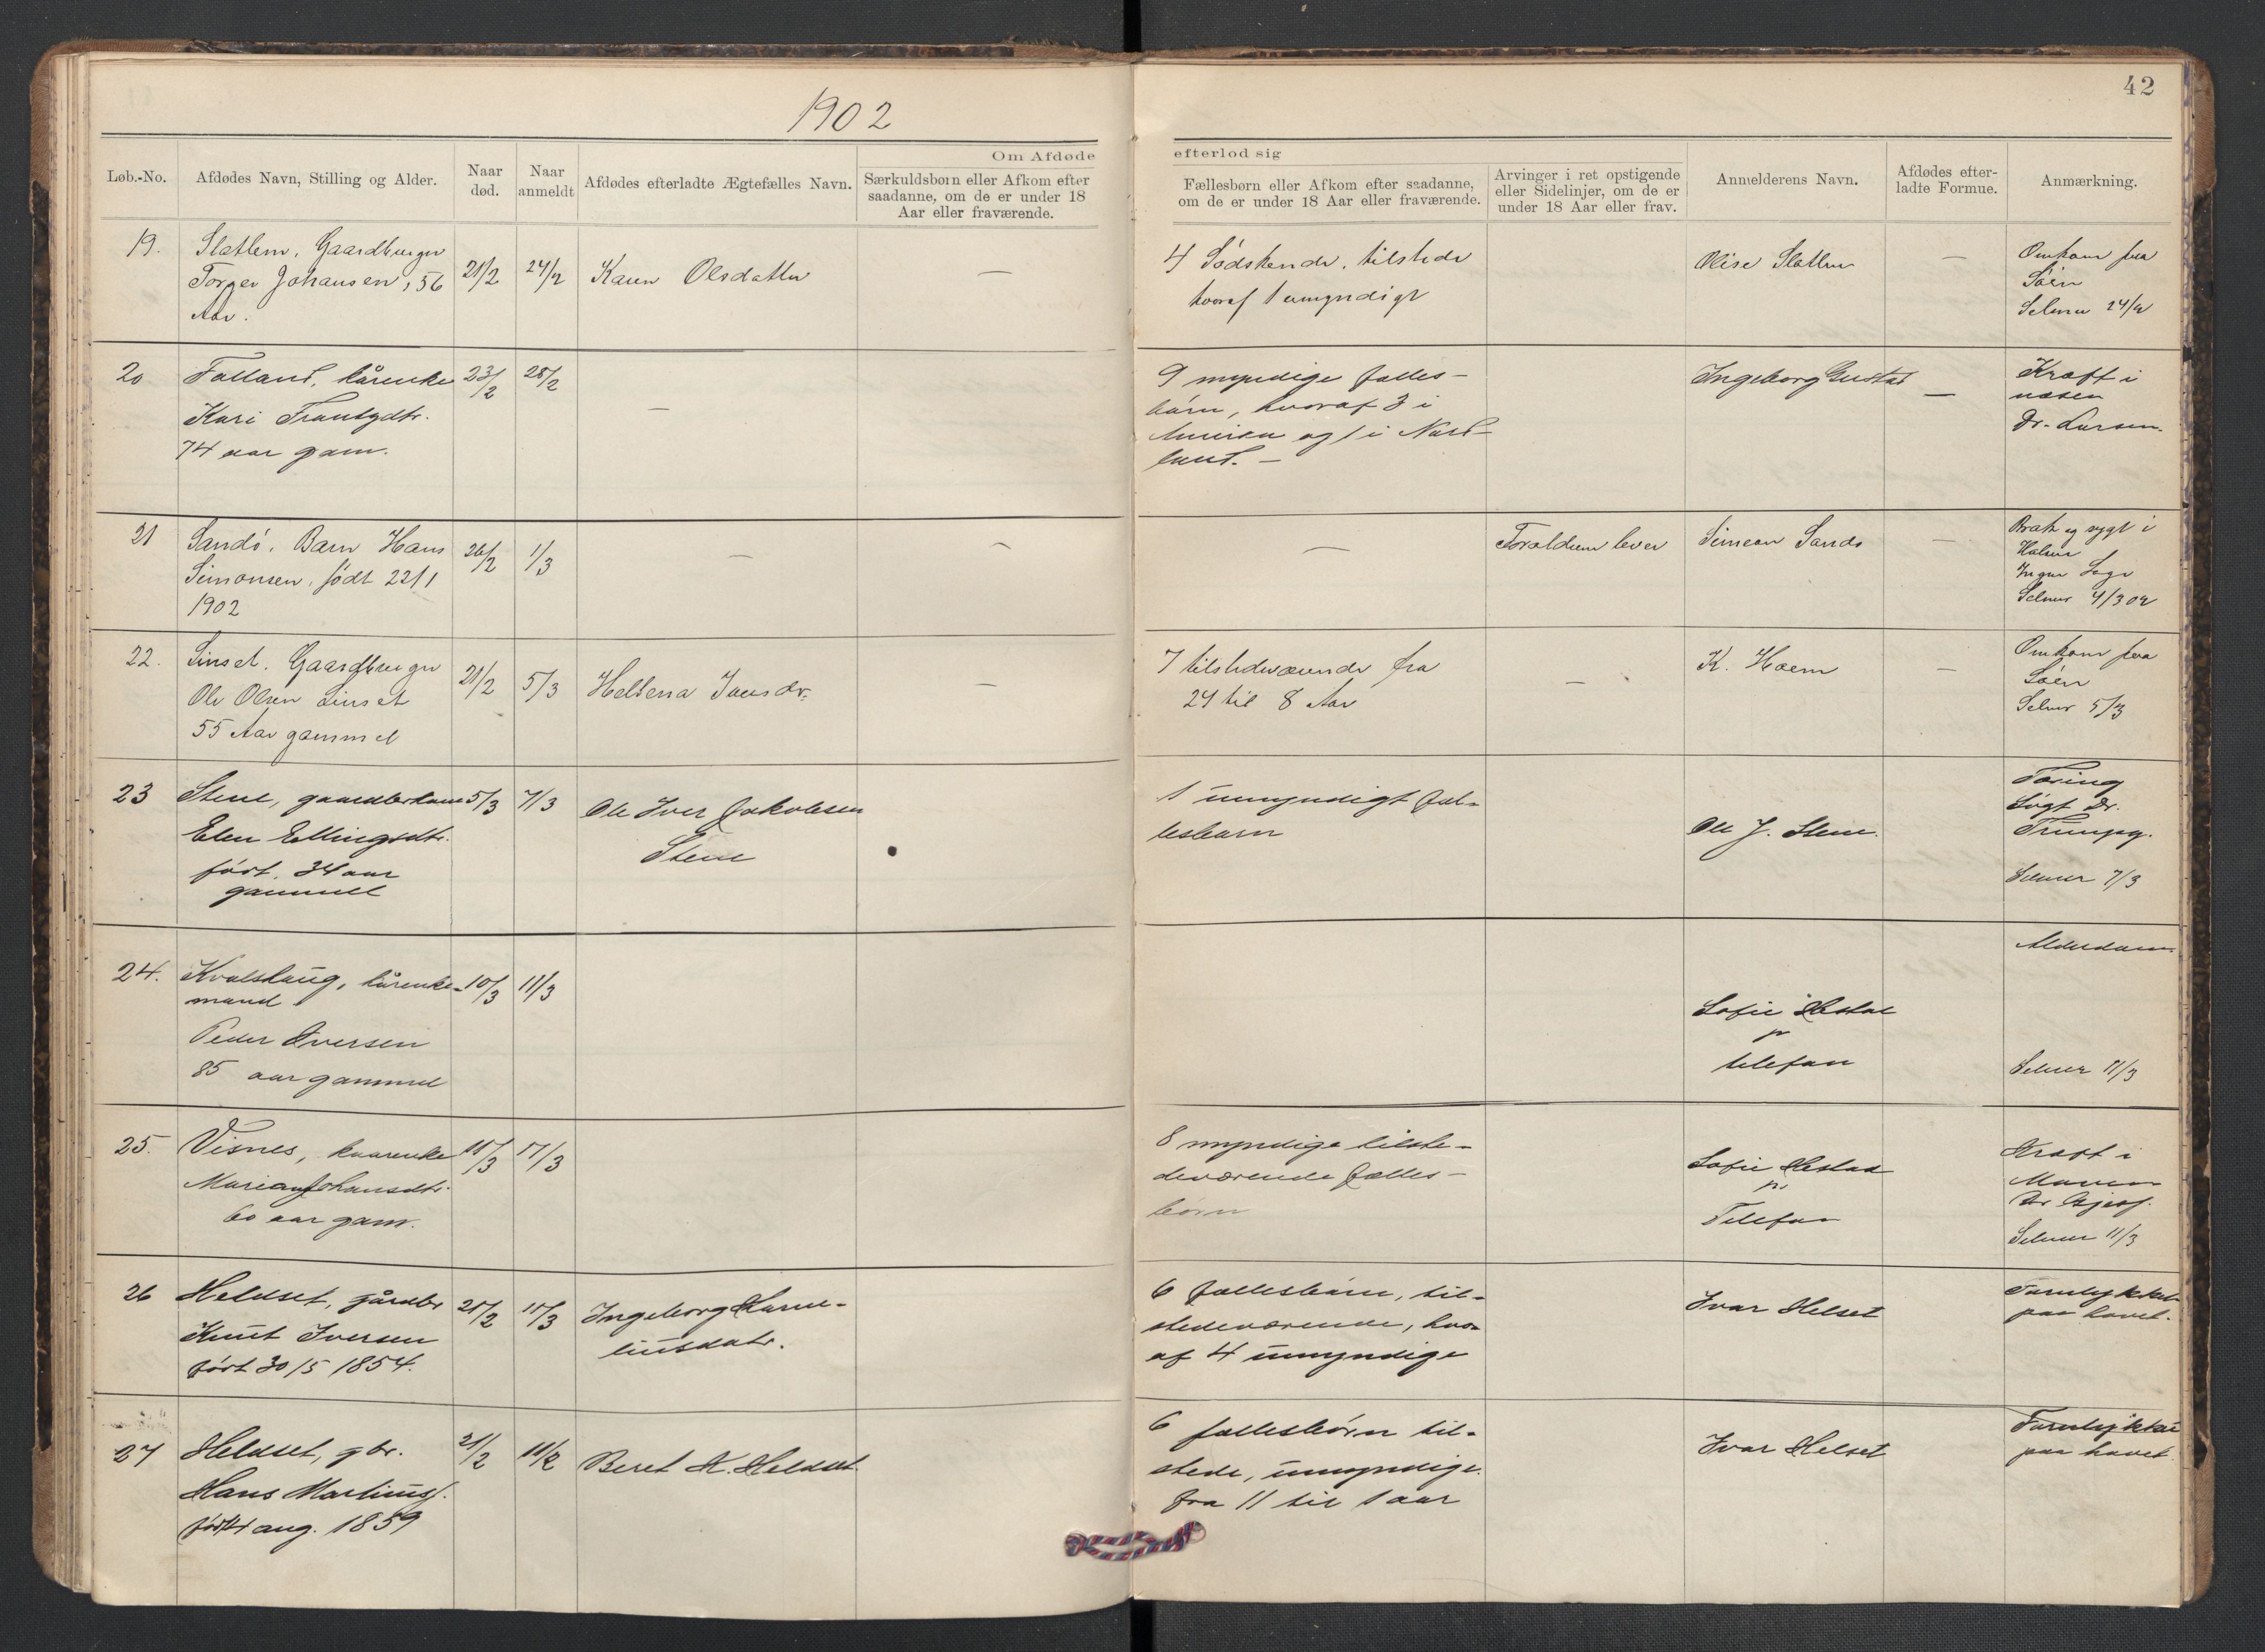 1902
42
Om Afdøde
efterlod sig
Løb.-No.
Afdødes Navn, Stilling og Alder.
Naar død.
Naar anmeldt
Afdødes efterladte Ægtefælles Navn.
Særkuldsbørn eller Afkom efter saadanne, om de er under 18 Aar eller fraværende.
Fællesbørn eller Afkom efter saadanne, om de er under 18 Aar eller fraværende.
Arvinger i ret opstigende eller Sidelinjer, om de er under 18 Aar eller frav.
Anmelderens Navn.
Afdødes efterladte Formue.
Anmærkning.
19.
Slatlem, Gaardbruger
Torger Johansen, 56
Aar.
21/2
24/2
Karen Olsdatter
—
4 Södskende, tilstede
hvoraf 1 umyndigt
Olise Slatlem
—
Omkom paa
Söen
Selmer 24/2
20
Folland, kårenke
Kari Frantzdtr.
74 aar gam.
23/2
28/2
—
9 myndige fælles-
börn, hvoraf 3 i
Amerika og 1 i Nord-
land. —
Ingeborg Gustad
—
Kræft i
næsen
Dr. Larsen.
21
Sandö, Barn Hans
Simonsen, födt 22/1
1902
26/2
1/3
—
—
—
Forældrene lever
Simeon Sandö
—
Brat og sygt i
Halsen
Ingen Læge
Selmer 4/3 02
22.
Sinset, Gaardbruger
Ole Olsen Sinset
55 Aar gammel
21/2
5/3
Hellena Jensdr.
—
7 tilstedeværende fra
24 til 8 Aar
—
K. Hoem
—
Omkom paa
Söen
Selmer 5/3
23
Stene, gaardbrkone
Elen Ellingsdtr.
födt. 34 aar
gammel
5/3
7/3
Ole Iver Jakobsen
Stene
1 umyndigt fæl-
lesbarn
Ole J. Stene.
Tæring
Sögt Dr.
Trumpy.
Selmer 7/3
24.
Kvalshaug, kårenke-
mand
Peder Iversen
85 aar gammel
10/3
11/3
Sofie Hestad
pr
telefon
Alderdom
Selmer 11/3
25.
Visnes, kaarenke
Marian Johansdtr.
60 aar gam.
10/3
11/3
8 myndige tilste-
deværende fælles-
börn
Sofie Hestad
pr.
Telefon
Kræft i
Maven
Selmer 11/3
26
Heldset, gårdbr
Knut Iversen
födt 30/5 1854.
21/2
11/3
Ingeborg Karne-
liusdatr.
6 fællesbörn, til-
stedeværende, hvor-
af 4 umyndige
Ivar Helset
Forulykket
paa havet.
27
Heldset, gbr.
Hans Martinuss.
födt 4 aug. 1859
21/2
11/2
Beret K. Heldset.
6 fællesbörn til-
stede, umyndige.
fra 11 til 1 aar
Ivar Helset
Forulykket
paa havet.